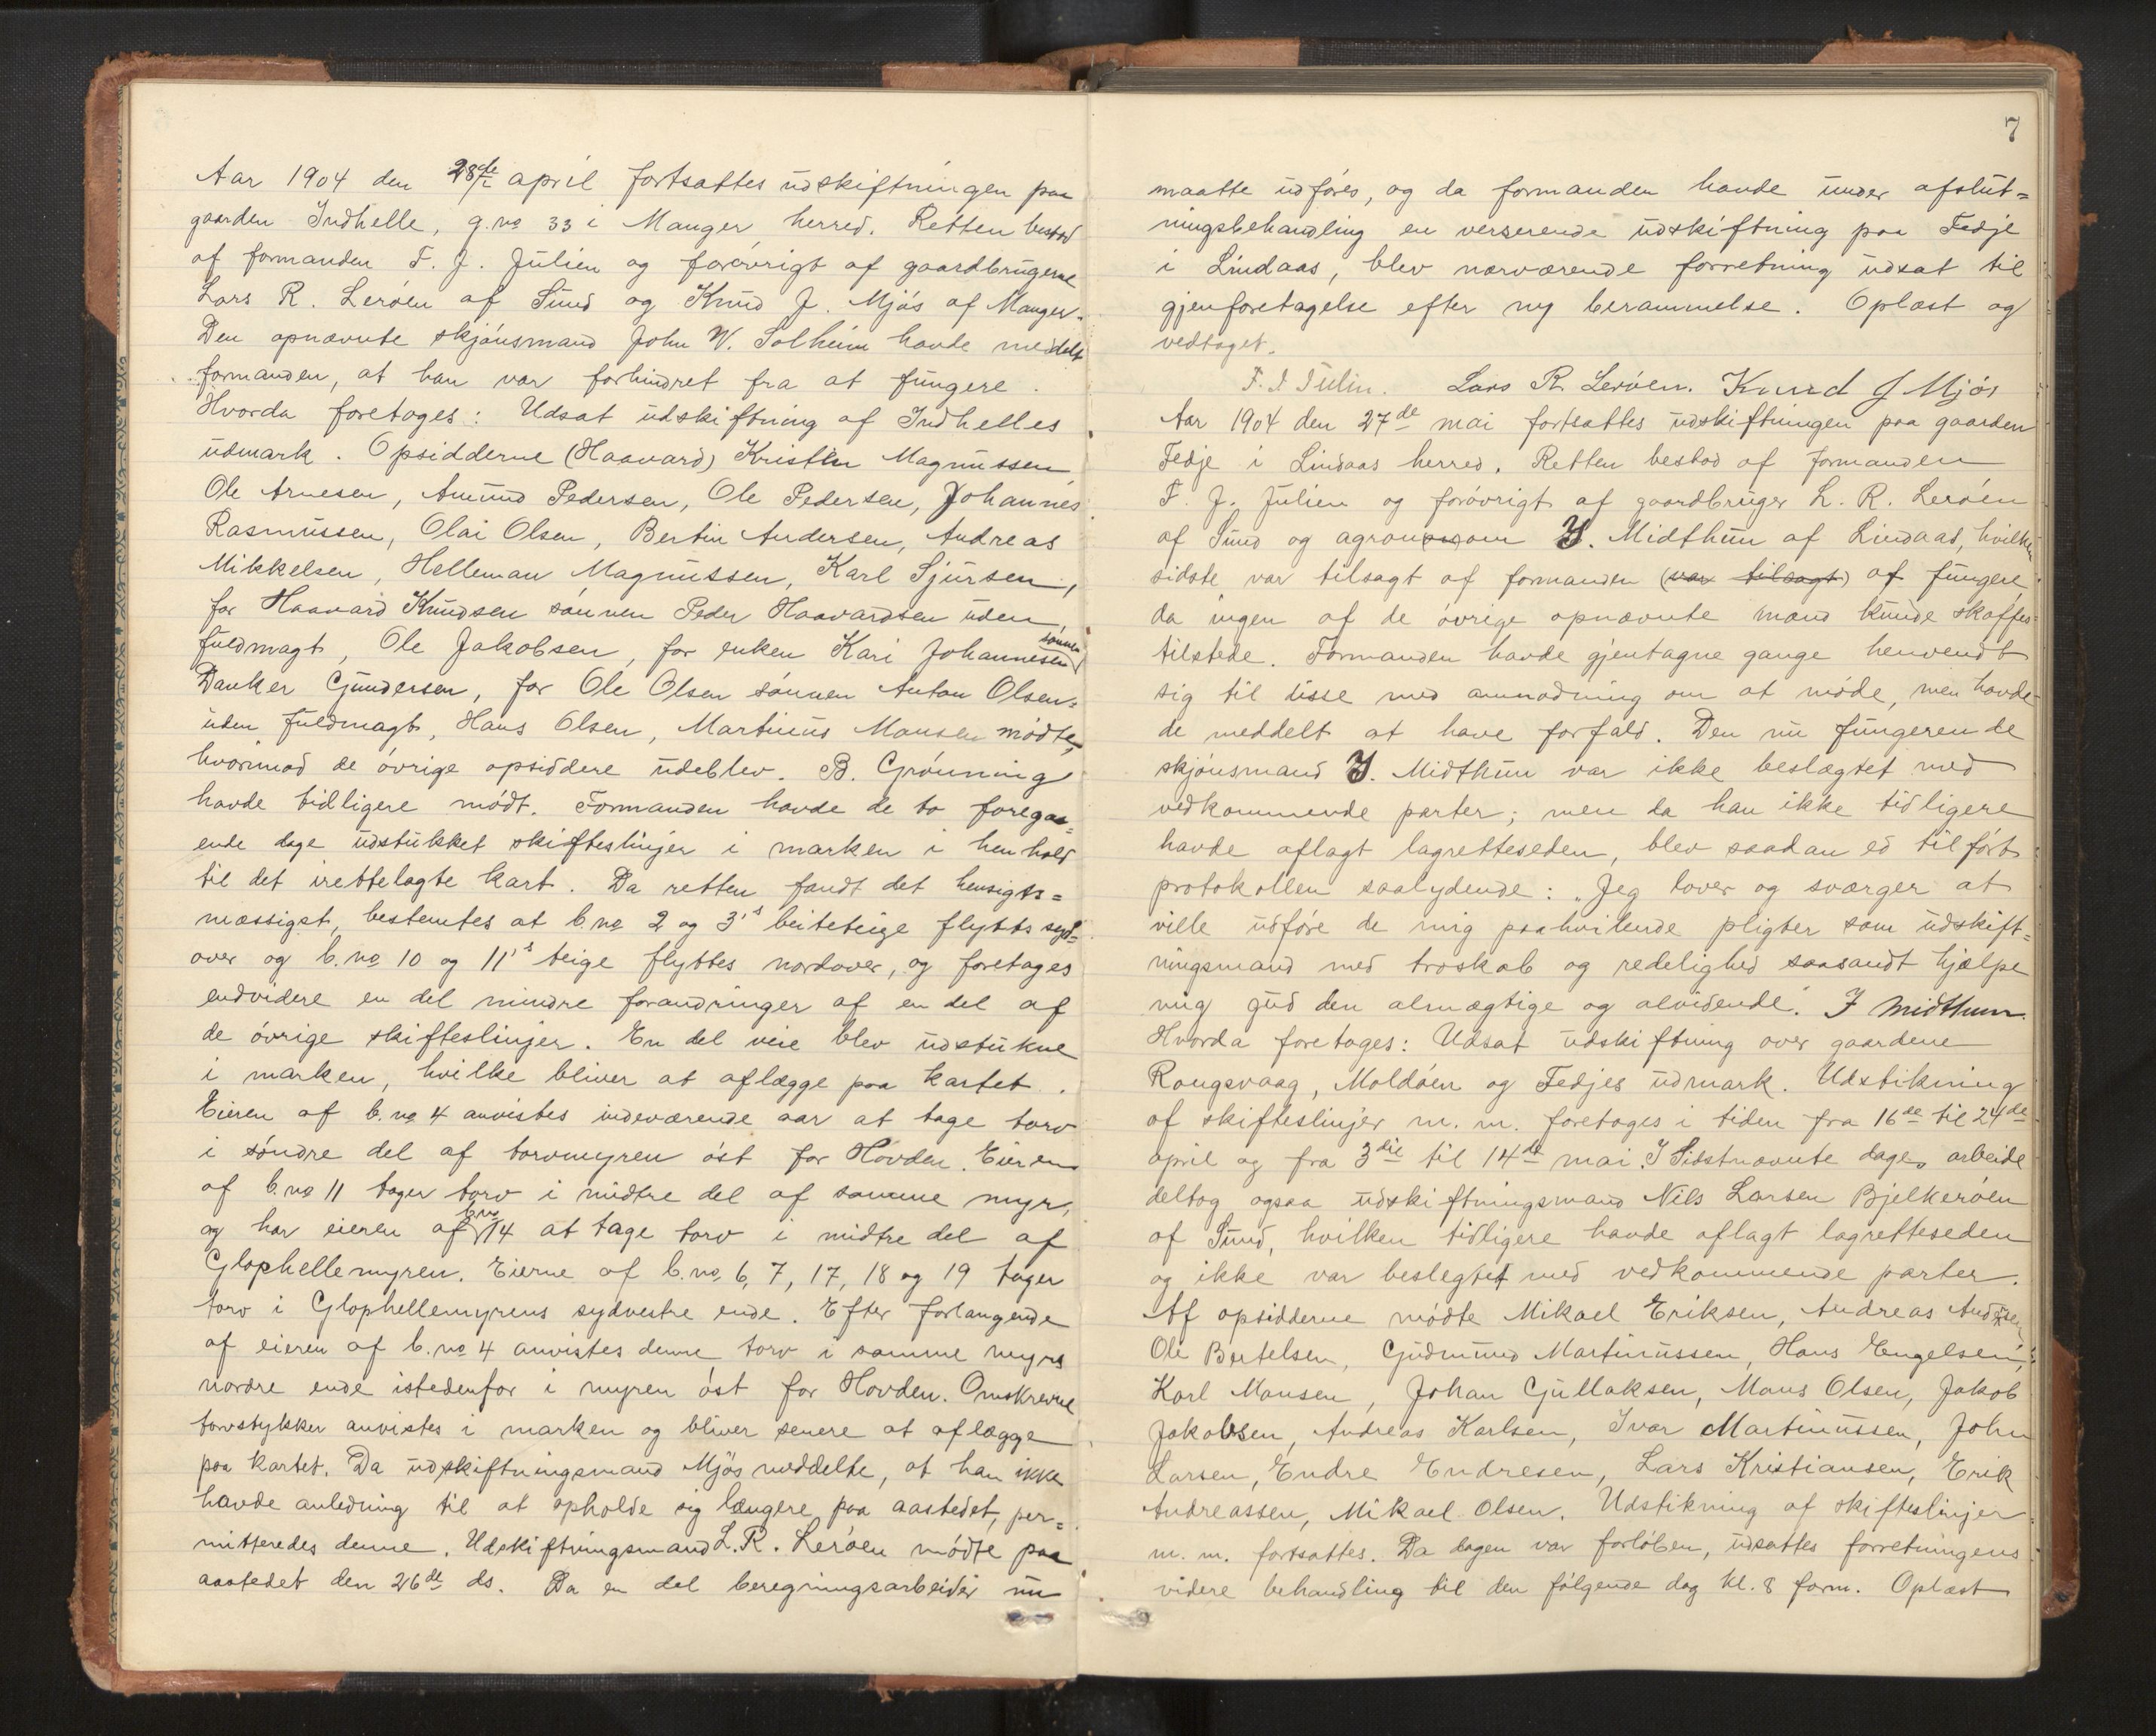 Aar 1904 den 28de april fortsattes udskiftningen paa
gaarden Indhelle, g.no 33 i Manger herred. Retten bestod
af formanden T. J. Julien og forøvrigt af gaardbrugerne
Lars R. Lerøen af Sund og Knud J. Mjøs af Manger.
Den opnævnte skjønsmand John W. Solheim havde meddelt
formanden, at han var forhindret fra at fungere.
Hvorda foretoges: Udsat udskiftning af Indhelles
udmark. Opsidderne (Haavard) Kristen Magnussen
Ole Arnesen, Amund Pedersen, Ole Pedersen, Johannes
Rasmussen, Olai Olsen, Bertin Andersen, Andreas
Mikkelsen, Helleman Magnussen, Karl Sjursen,
for Haavard Knudsen sønnen Peder Haavardsen uden
fuldmagt, Ole Jakobsen, for enken Kari Johannesen sønnen
Danker Gundersen, for Ole Olsen sønnen Anton Olsen
uden fuldmagt, Hans Olsen, Martinus Monsen mødte,
hvorimod de øvrige opsiddere udeblev. B. Grønning
havde tidligere mødt. Formanden havde de to foregaa=
ende dage udstukket skifteslinjer i marken i henhold
til det irettelagte kart. Da retten fandt det hensigts=
mæssigst, bestemtes at b.no 2 og 3's beiteteige flyttes syd=
over og b.no 10 og 11's teige flyttes nordover, og foretoges
endvidere en del mindre forandringer af en del af
de øvrige skifteslinjer. En del veie blev udstukne
i marken, hvilke bliver at aflægge paa kartet.
Eieren af b.no 4 anvistes indeværende aar at tage torv
i søndre del af torvmyren øst for Hovden. Eieren
af b.no 11 tager torv i midtre del af samme myr,
og har eieren af b.no 14 at tage torv i midtre del af
Glophellemyren. Eierne af b.no 6, 7, 17, 18 og 19 tager
torv i Glophellemyrens sydvestre ende. Efter forlangende
af eieren af b.no 4 anvistes denne torv i samme myrs
nordre ende istedenfor i myren øst for Hovden. Omskrevne
torvstykker anvistes i marken og bliver senere at aflægge
paa kartet. Da udskiftningsmand Mjøs meddelte, at han ikke
havde anledning til at opholde sig længere paa aastedet, per=
mitteredes denne. Udskiftningsmand L. R. Lerøen mødte paa
aastedet den 26de ds. Da en del beregningsarbeider nu
7
maatte udføres, og da formanden havde under afslut=
ningsbehandling en verserende udskiftning paa Fedje
i Lindaas, blev nærværende forretning udsat til
gjenforetagelse efter ny berammelse. Oplæst og
vedtaget.
T. J. Julin. Lars R. Lerøen. Knud J Mjøs
Aar 1904 den 27de mai fortsattes udskiftningen paa gaarden
Fedje i Lindaas herred. Retten bestod af formanden
T. J. Julien og forøvrigt af gaardbruger L. R. Lerøen
af Sund og agronom I. Midthun af Lindaas, hvilken
sidste var tilsagt af formanden (var tilsagt) at fungere
da ingen af de øvrige opnævnte mænd kunde skaffes
tilstede. Formanden havde gjentagne gange henvendt
sig til disse med anmodning om at møde, men havde
de meddelt at have forfald. Den nu fungerende
skjønsmand I. Midthun var ikke beslægtet med
vedkommende parter; men da han ikke tidligere
havde aflagt lagretteseden, blev saadan ed tilført
protokollen saalydende: „Jeg lover og sværger at
ville udføre de mig paahvilende pligter som udskift=
ningsmand med troskab og redelighed saasandt hjælpe
mig gud den almægtige og alvidende." I Midthun.
Hvorda foretoges: Udsat udskiftning over gaardene
Rongsvaag, Moldøen og Fedjes udmark. Udstikning
af skifteslinjer m. m. foretoges i tiden fra 16de til 24de
april og fra 3die til 14de mai. I Sidstnævnte dages arbeide
deltog ogsaa udskiftningsmand Nils Larsen Bjelkerøen
af Sund, hvilken tidligere havde aflagt lagretteseden
og ikke var beslegtet med vedkommende parter.
Af opsidderne mødte Mikael Eriksen, Andreas Andersen
Ole Bertelsen, Gudmund Martinussen, Hans Engelsen,
Karl Monsen, Johan Gullaksen, Mons Olsen, Jakob
Jakobsen, Andreas Karlsen, Ivar Martinussen, John
Larsen, Endre Endresen, Lars Kristiansen, Erik
Andreassen, Mikael Olsen. Udstikning af skifteslinjer
m. m. fortsattes. Da dagen var forløben, udsattes forretningens
videre behandling til den følgende dag kl. 8 form. Oplæst